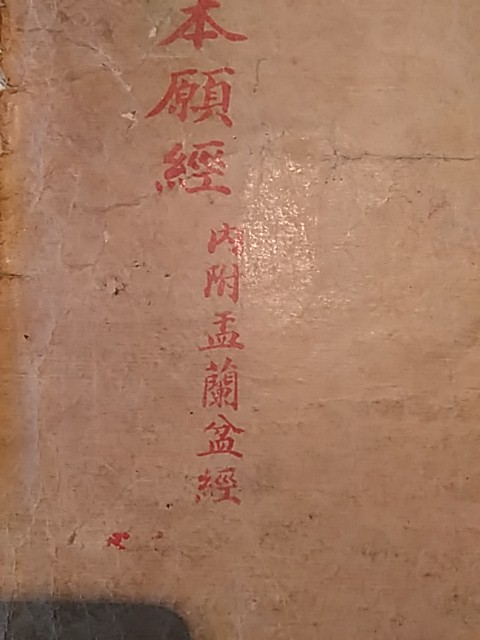 本願經
内附盂蘭盆經